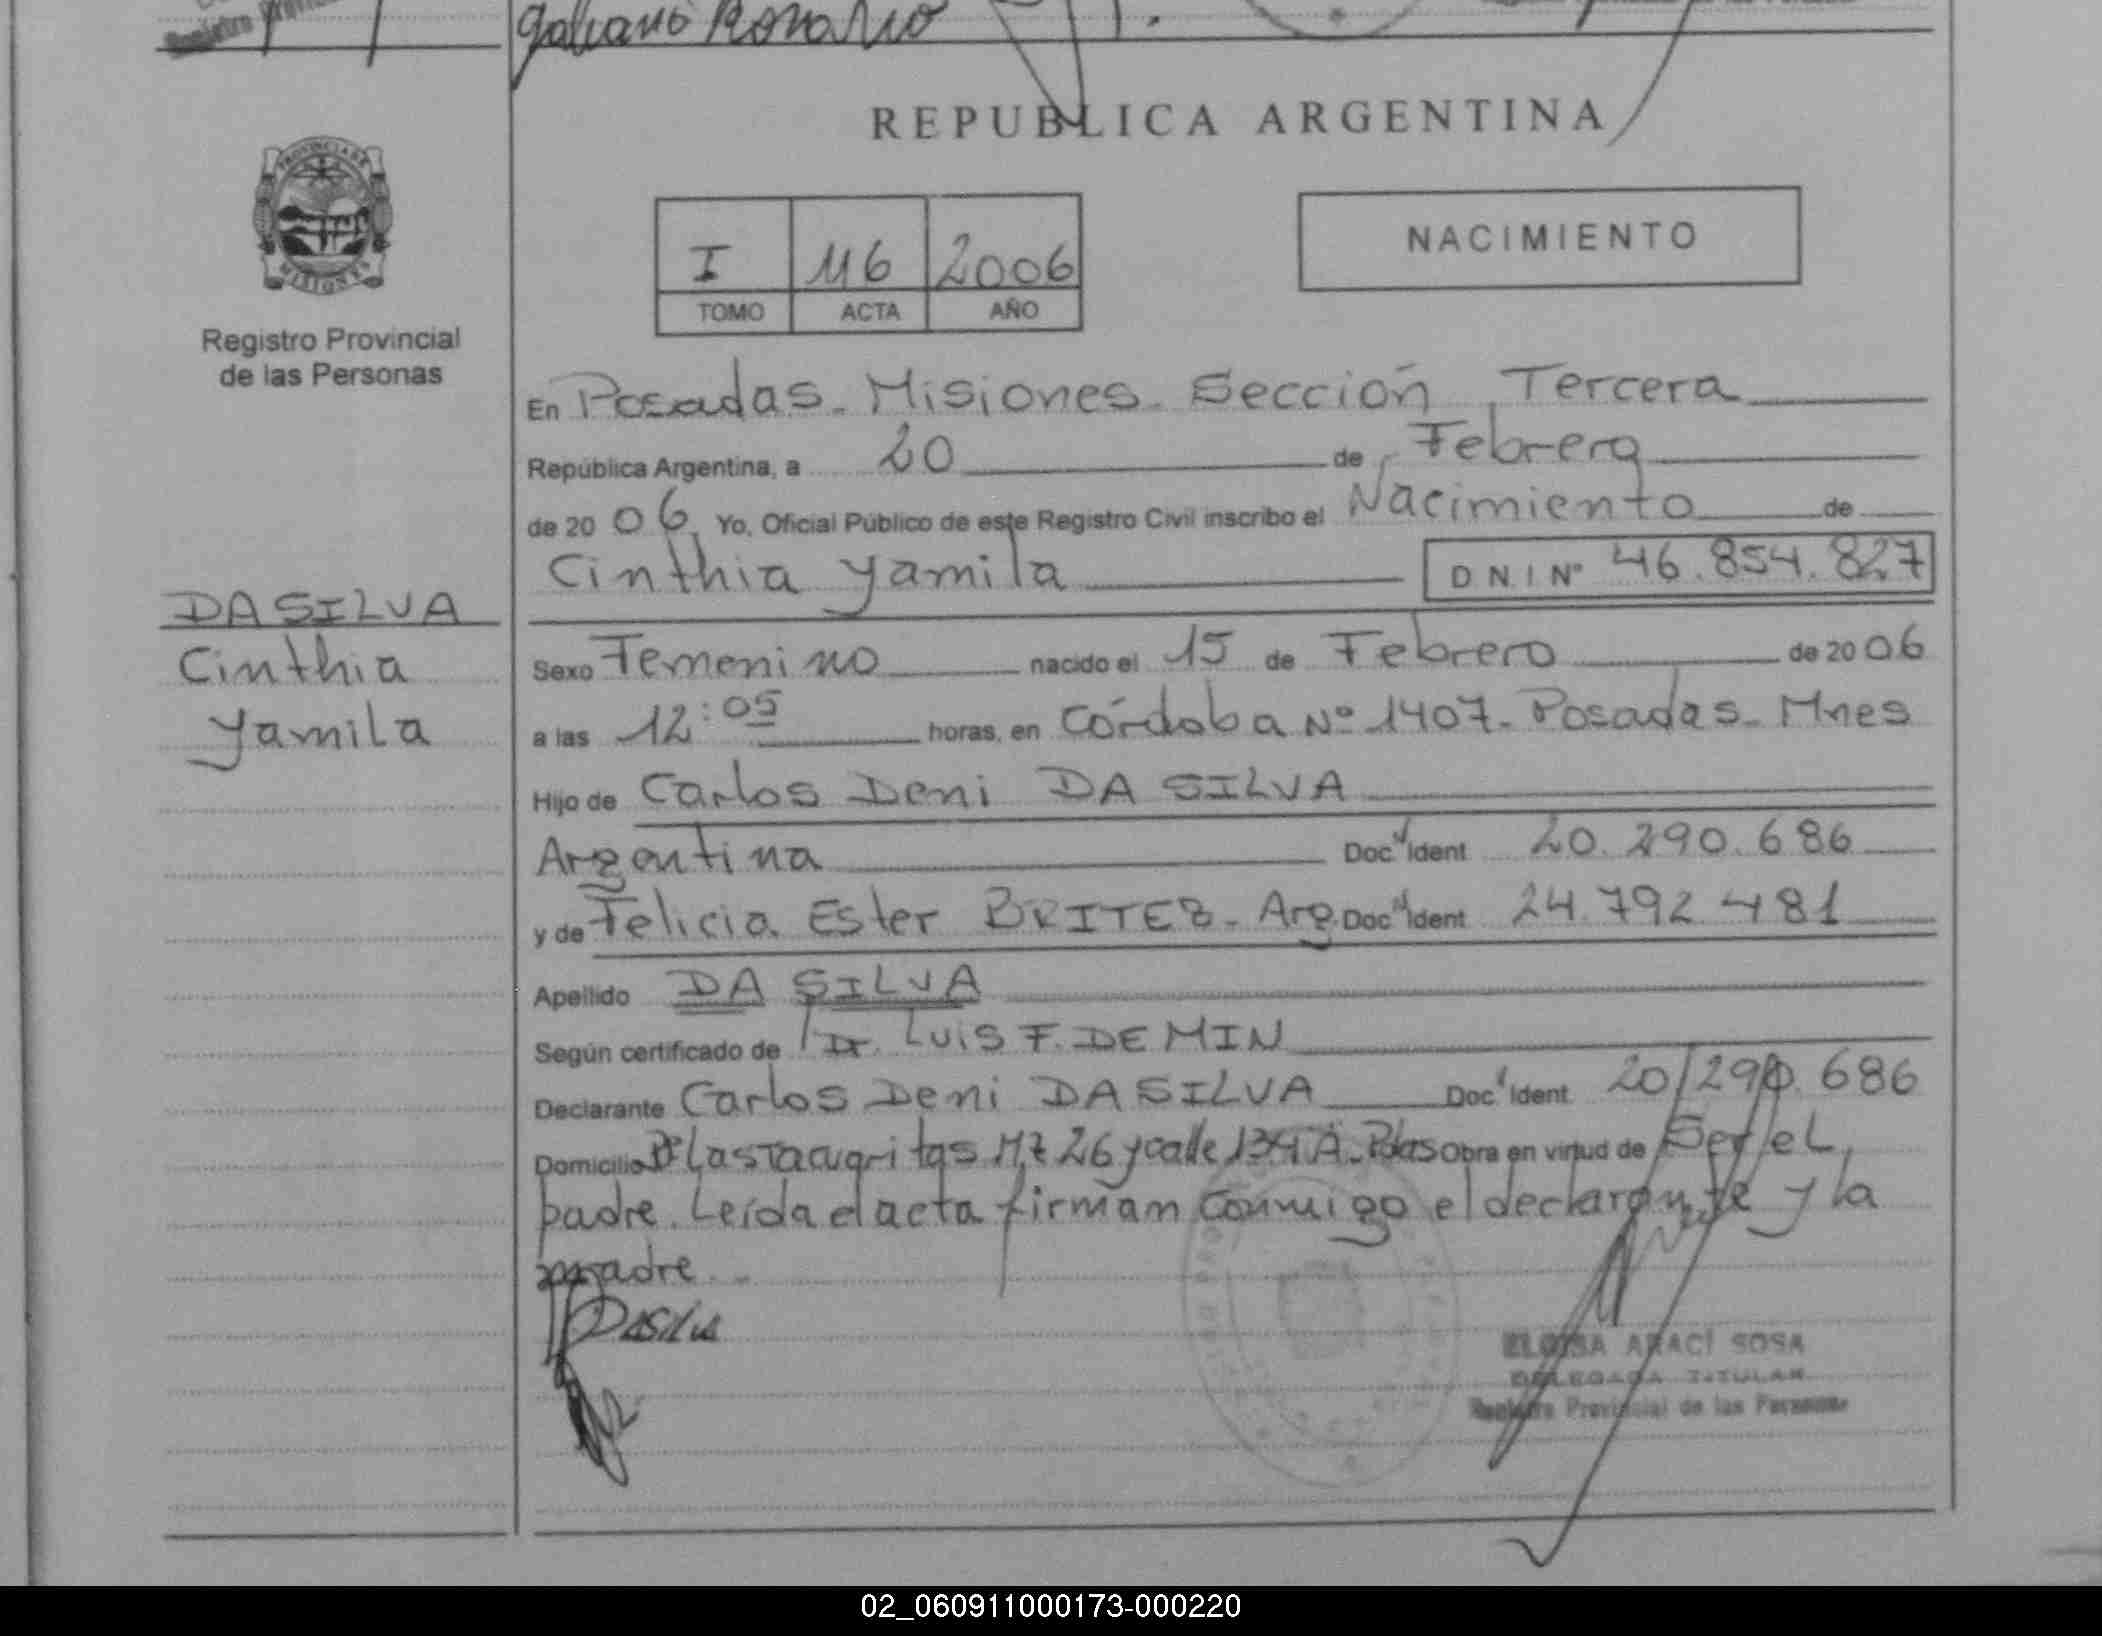 Registro
Galiano Rosario
REPUBLICA ARGENTINA
PROVINCIA DE
MISIONES
Registro Provincial
de las Personas
I 116 2006
TOMO ACTA AÑO
NACIMIENTO
En Posadas. Misiones. Sección Tercera
República Argentina, a 20 de Febrero
de 2006, Yo, Oficial Público de este Registro Civil inscribo el Nacimiento de
Cinthia Yamila D.N.I Nº 46.854.827
DA SILVA
Cinthia
Yamila
Sexo Femenino nacido el 15 de Febrero de 2006
a las 12:05 horas, en Córdoba Nº 1407- Posadas- Mnes
Hijo de Carlos Deni DA SILVA
Argentina Doc Ident 20.290.686
y de Felicia Ester BRITEZ- Arg. Doc Ident 24.792.481
Apellido DA SILVA
Según certificado de Dr. Luis F. DEMIN
Declarante Carlos Deni DA SILVA Doc Ident 20/290.686
Domicilio Mz 26 y calle 134 A- Obra en virtud de Ser el
padre. Leída el acta firman conmigo el declarante y la
madre.
Dasilva
ELOISA ARACI SOSA
DELEGADA TITULAR
Registro Provincial de las Personas
02_060911000173-000220